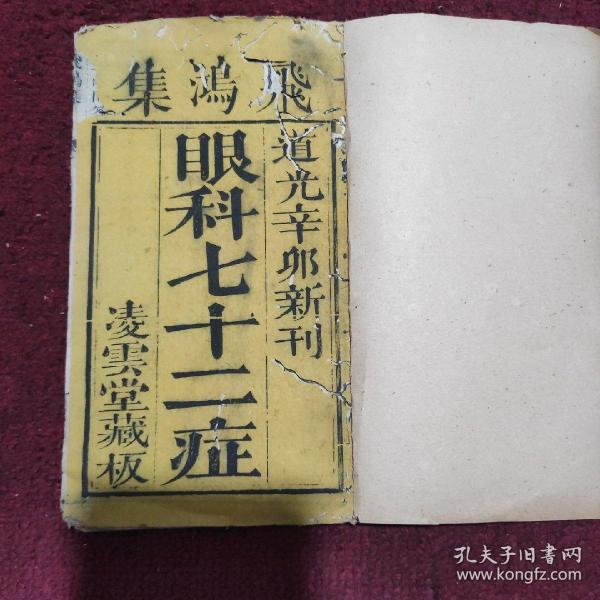 飛鴻集
道光辛卯新刊
眼科七十二症
凌雲堂藏板
孔夫子旧书网
www.kongfz.com